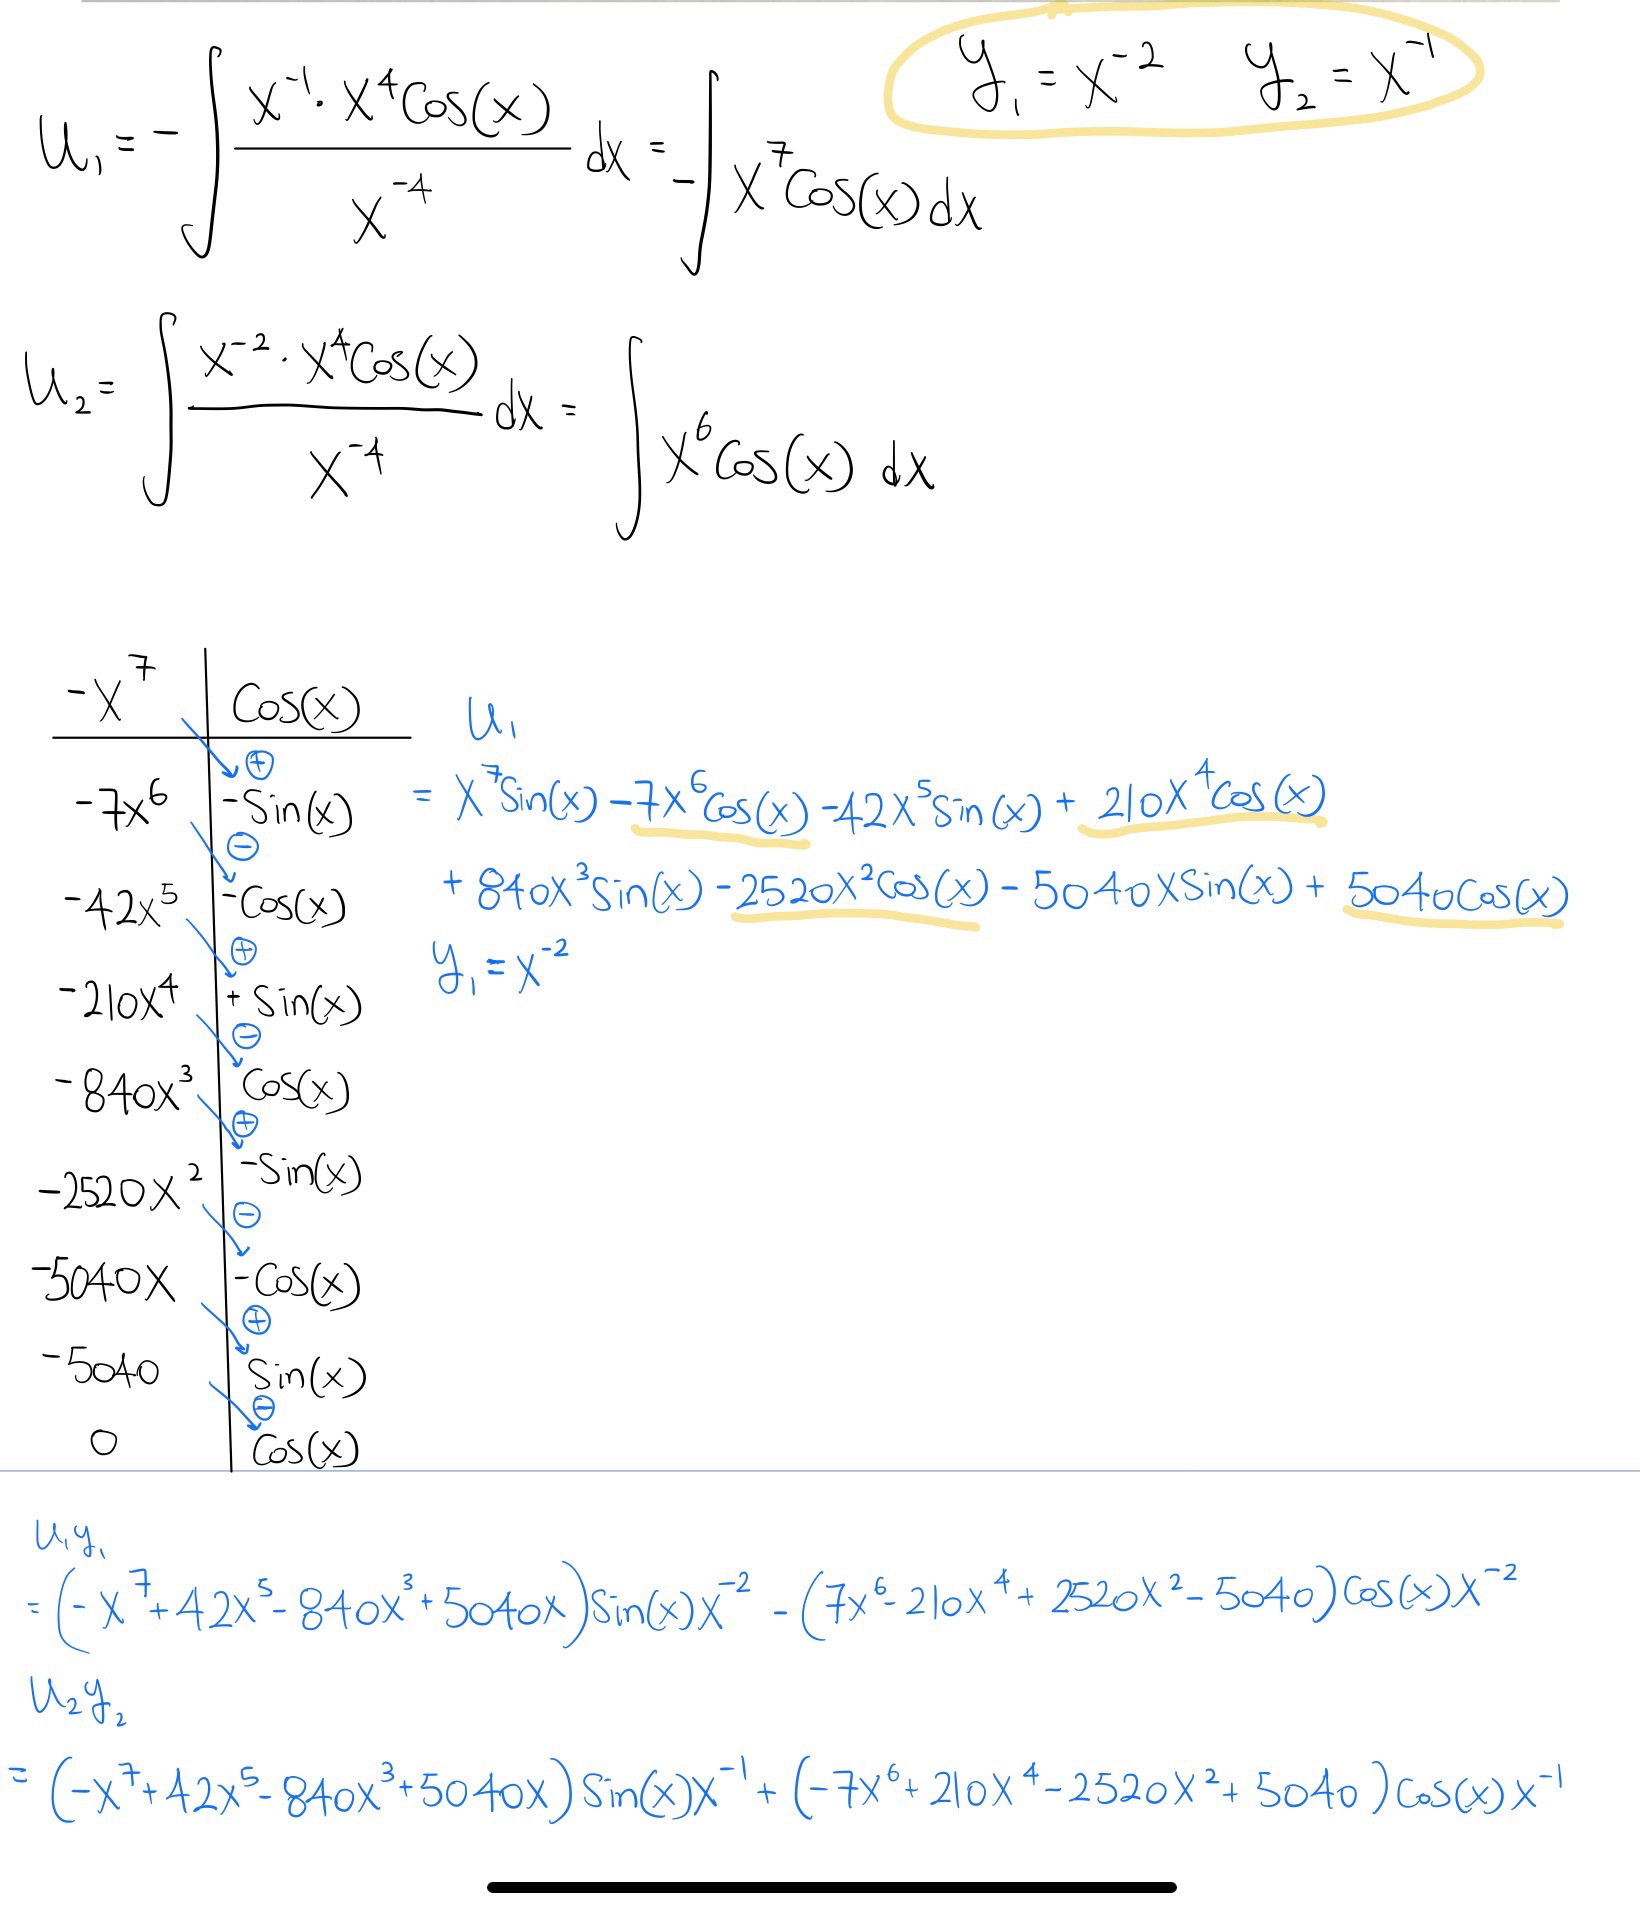 y₁ = x⁻² y₂ = x⁻¹
u₁ = - ∫ x⁻¹ · x⁴Cos(x) / x⁻⁴ dx = - ∫ x⁷Cos(x) dx
u₂ = ∫ x⁻² · x⁴Cos(x) / x⁻⁴ dx = ∫ x⁶Cos(x) dx
-x⁷ | Cos(x)
⊕
-7x⁶ | -Sin(x)
⊖
-42x⁵ | -Cos(x)
⊕
-210x⁴ | + Sin(x)
⊖
-840x³ | Cos(x)
⊕
-2520x² | -Sin(x)
⊖
-5040x | -Cos(x)
⊕
-5040 | Sin(x)
⊖
0 | Cos(x)
u₁
= x⁷Sin(x) - 7x⁶Cos(x) - 42x⁵Sin(x) + 210x⁴Cos(x)
+ 840x³Sin(x) - 2520x²Cos(x) - 5040xSin(x) + 5040Cos(x)
y₁ = x⁻²
u₁y₁
= (-x⁷ + 42x⁵ - 840x³ + 5040x) Sin(x) x⁻² - (7x⁶ - 210x⁴ + 2520x² - 5040) Cos(x) x⁻²
u₂y₂
= (-x⁷ + 42x⁵ - 840x³ + 5040x) Sin(x) x⁻¹ + (-7x⁶ + 210x⁴ - 2520x² + 5040) Cos(x) x⁻¹